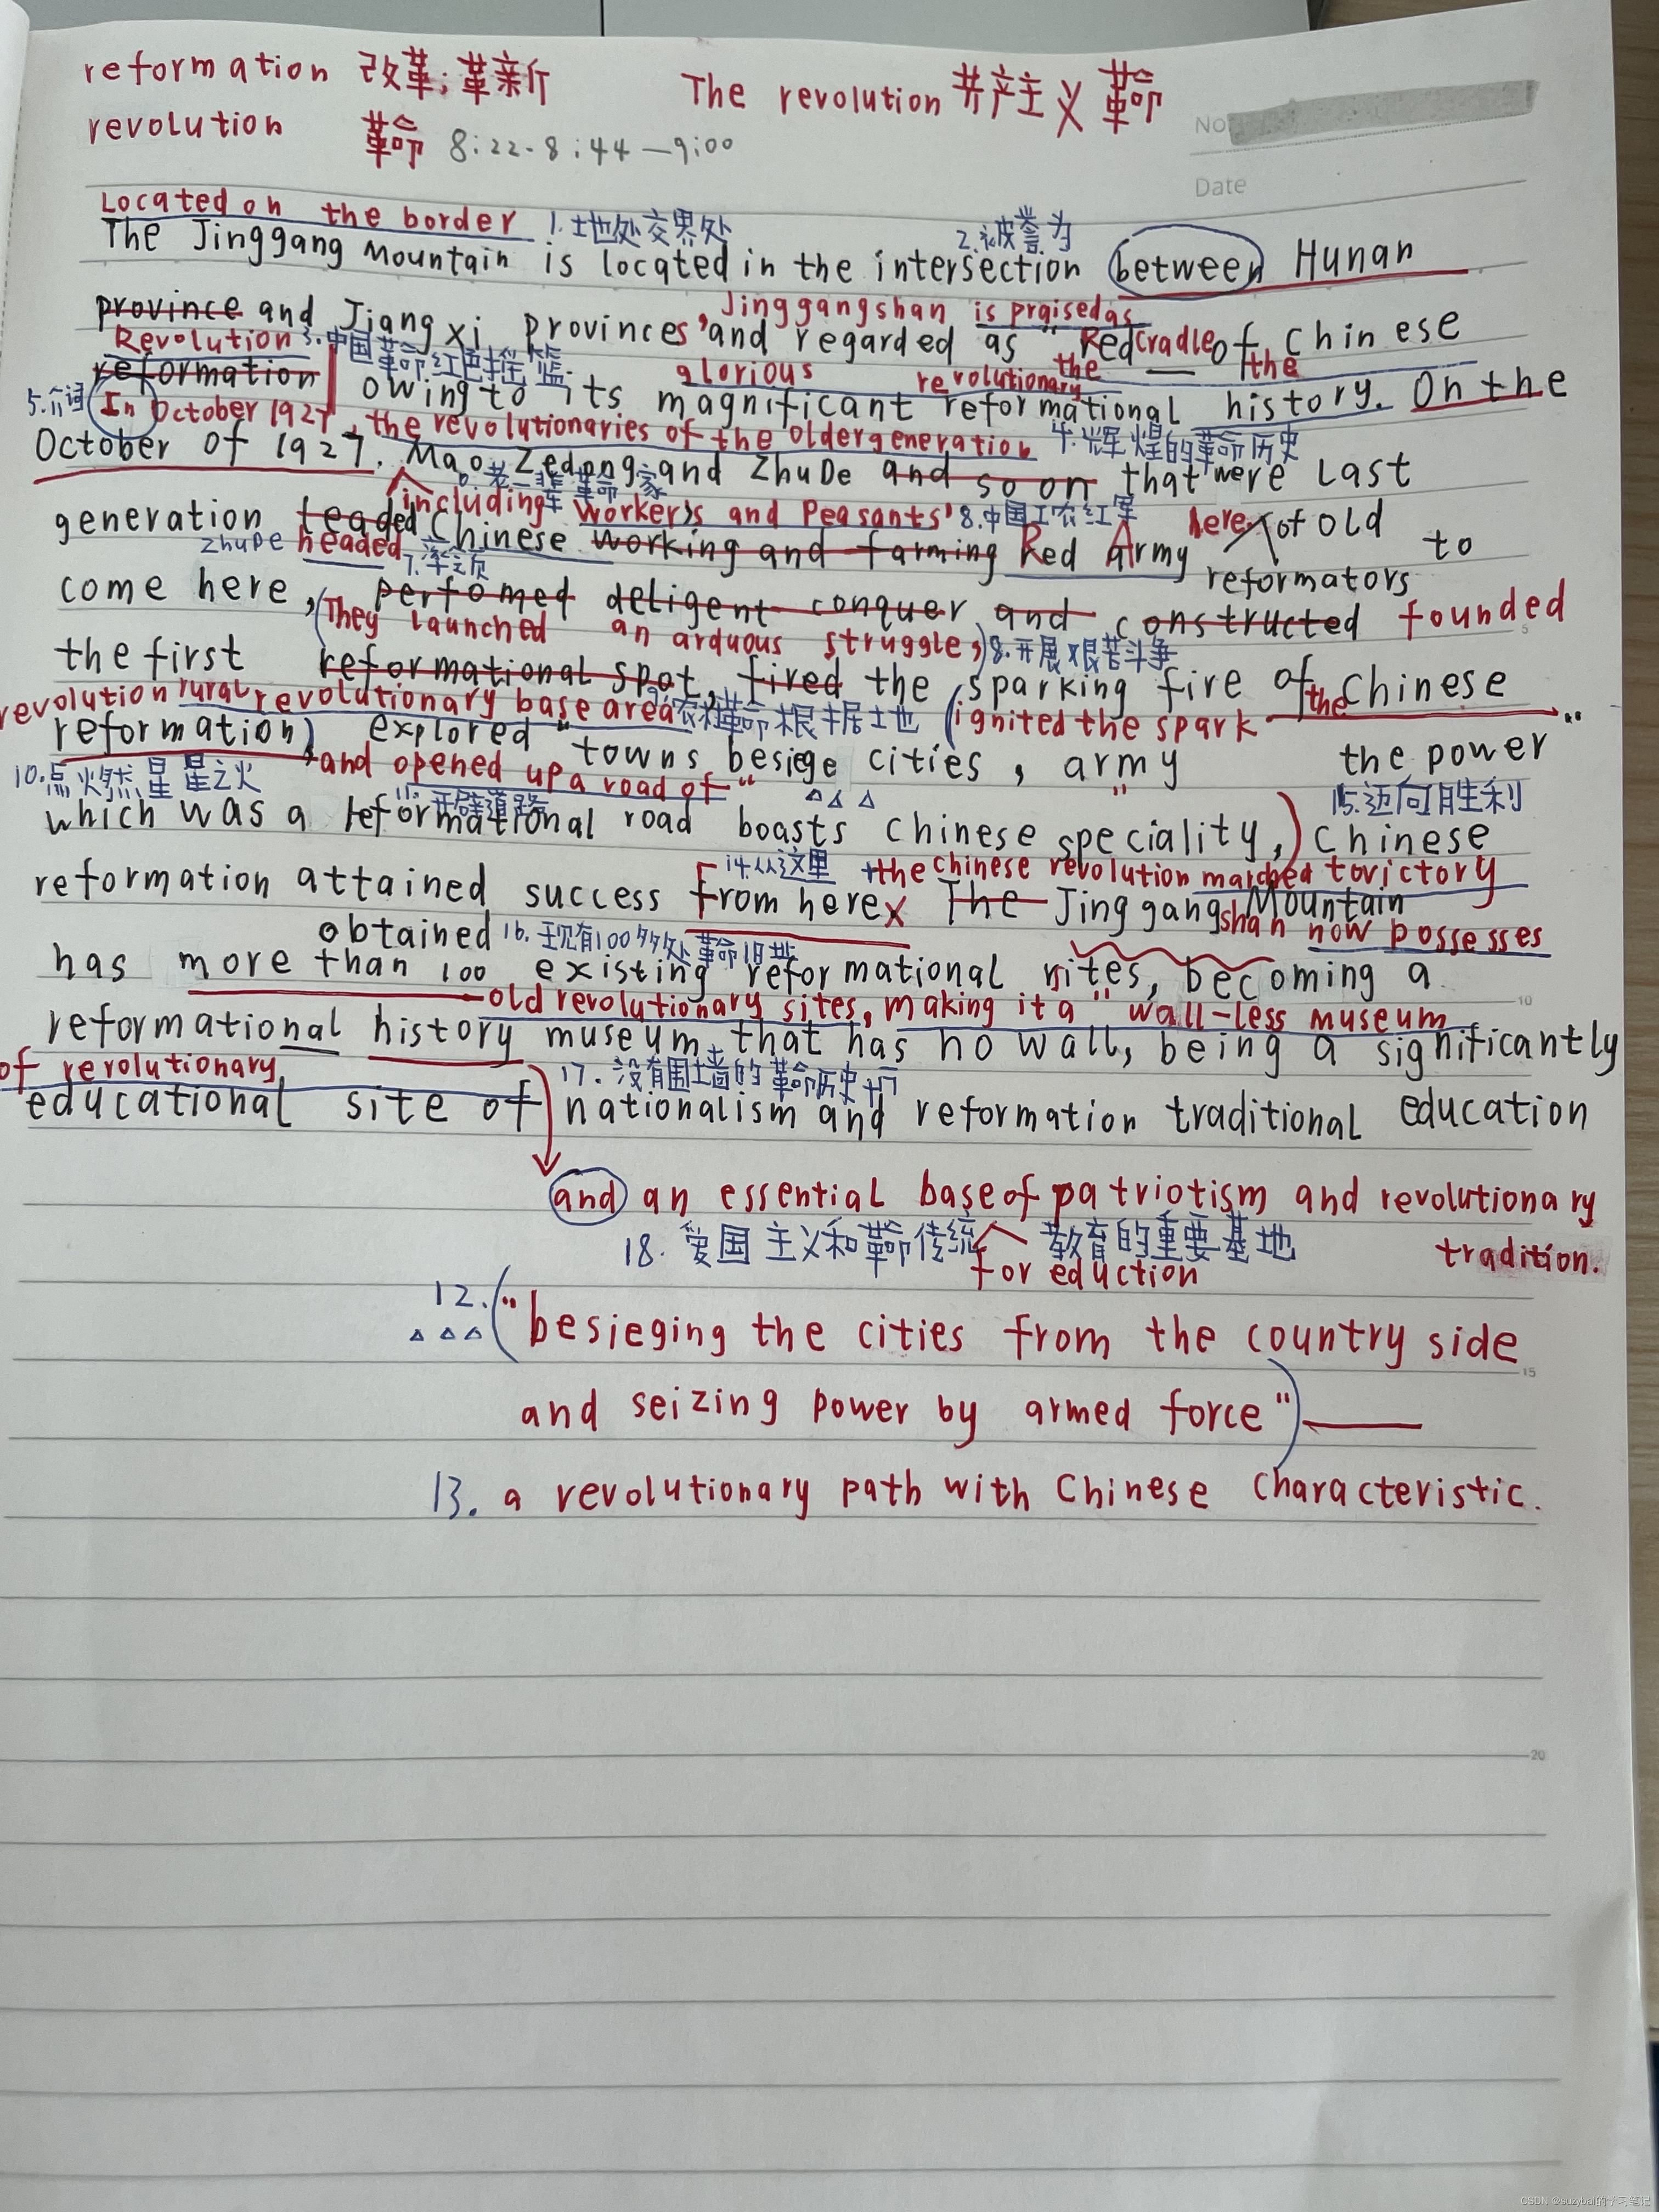 reformation 改革；革新 The revolution 共产主义革命
revolution 革命 8:22-8:44—9:00
No
Date
Located on the border 1.地处交界处 2.被誉为
The Jinggang Mountain is located in the intersection between Hunan
, Jinggangshan is praised as
province and Jiangxi provinces and regarded as "Red cradle of Chinese
Revolution 3.中国革命红色摇篮 the the
reformation owing to its magnificant reformational history. On the
glorious revolutionary
5.介词 In October 1927, the revolutionaries of the older generation 4.辉煌的革命历史
October of 1927. Mao Zedong and ZhuDe and so on that were last
6.老一辈革命家
including workers and Peasants' 8.中国工农红军
generation leaded Chinese working and farming Red Army here of old to
ZhuDe headed 7.率领 reformators
come here, perfomed deligent conquer and constructed founded
(They launched an arduous struggle,) 8.开展艰苦斗争
the first reformational spot, fired the sparking fire of the Chinese
revolution rural revolutionary base area 9.农村革命根据地 (ignited the spark
reformation) explored "towns besiege cities, army the power"
10.点燃星星之火 and opened up a road of " 15.迈向胜利
11.开辟道路
which was a reformational road boasts Chinese speciality,) Chinese
14.从这里 the chinese revolution marched to victory
reformation attained success from here The Jinggangshan Mountain
obtained 16.现有100多处革命旧址 now possesses
has more than 100 existing reformational sites, becoming a
old revolutionary sites, making it a "wall-less museum
reformational history museum that has no wall, being a significantly
of revolutionary 17.没有围墙的革命历史
educational site of nationalism and reformation traditional education
and an essential base of patriotism and revolutionary
18.爱国主义和革命传统教育的重要基地 tradition.
for eduction
12. ("besieging the cities from the country side
and seizing power by armed force")
13. a revolutionary path with Chinese characteristic.
5
10
15
20
CSDN @suzybai的学习笔记